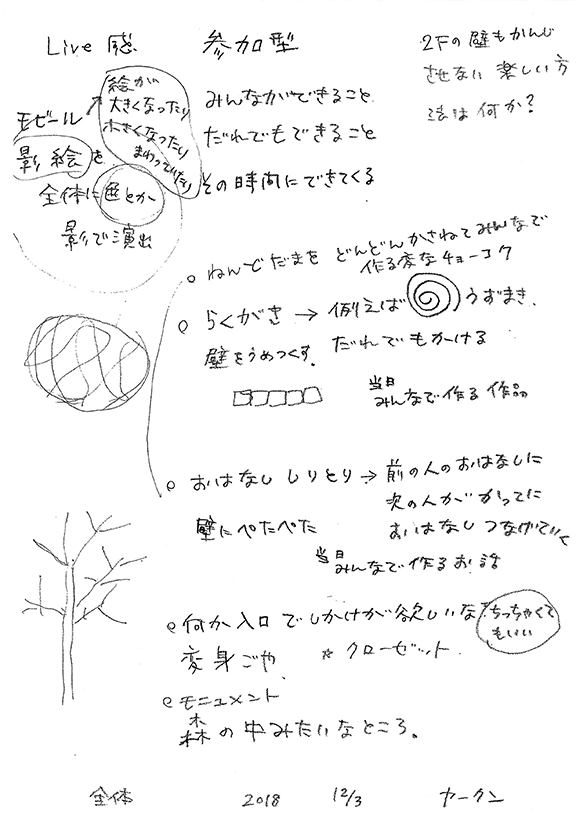 Live 感
参加型
2Fの壁もかんじ
させない 楽しい方
法は何か?
絵が
大きくなったり
小さくなったり
まわっていたり
モビール
影絵を
全体に色とか
影で演出
みんなができること
だれでもできること
その時間にできてくる
ねんどだまを どんどんかさねてみんなで
作る変なチョーコク
らくがき → 例えば うずまき、
壁をうめつくす、だれでもかける
当日
みんなで作る作品
おはなし しりとり → 前の人のおはなしに
次の人が かってに
おはなし つなげていく
壁にぺたぺた
当日
みんなで作るお話
何か入口でしかけが欲しいな
ちっちゃくて
もいい
変身ごや、 ☆ クローゼット
モニュメント
森の中みたいなところ。
全体 2018 12/3 ヤークン